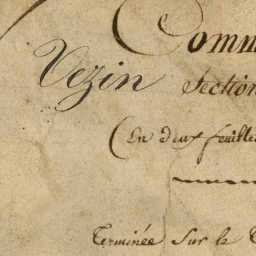 Comm
Vezin Section
(En deux feuilles
Terminée sur le t